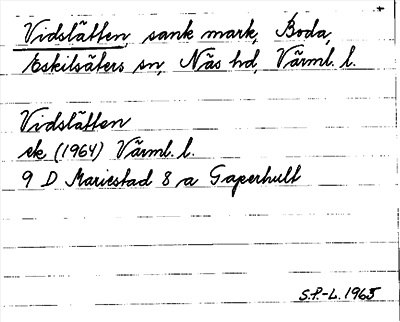 Vidslätten, sank mark, Boda,
Eskilsäters sn, Näs hd, Värml. l.
Vidslätten
ek (1964) Värml. l.
9 D Mariestad 8 a Gaperhult
S.P.-L. 1965